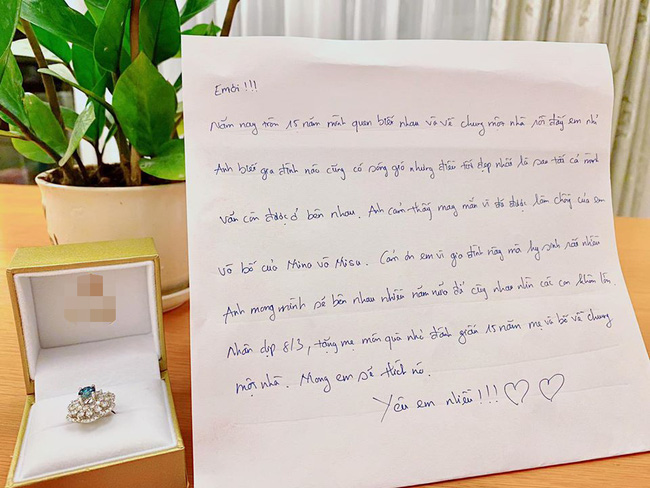 Em ơi !!!
Năm nay tròn 15 năm mình quen biết nhau và về chung một nhà rồi đấy em nhỉ
Anh biết gia đình nào cũng có sóng gió nhưng điều tốt đẹp nhất là sau tất cả mình
vẫn còn được ở bên nhau. Anh cảm thấy may mắn vì đã được làm chồng của em
và bố của Mino và Misu. Cảm ơn em vì gia đình này mà hy sinh rất nhiều
Anh mong mình sẽ bên nhau nhiều năm nữa để cùng nhau nhìn các con khôn lớn.
Nhân dịp 8/3, tặng mẹ món quà nhỏ đánh dấu 15 năm mẹ và bố về chung
một nhà. Mong em sẽ thích nó.
Yêu em nhiều!!! ♡ ♡